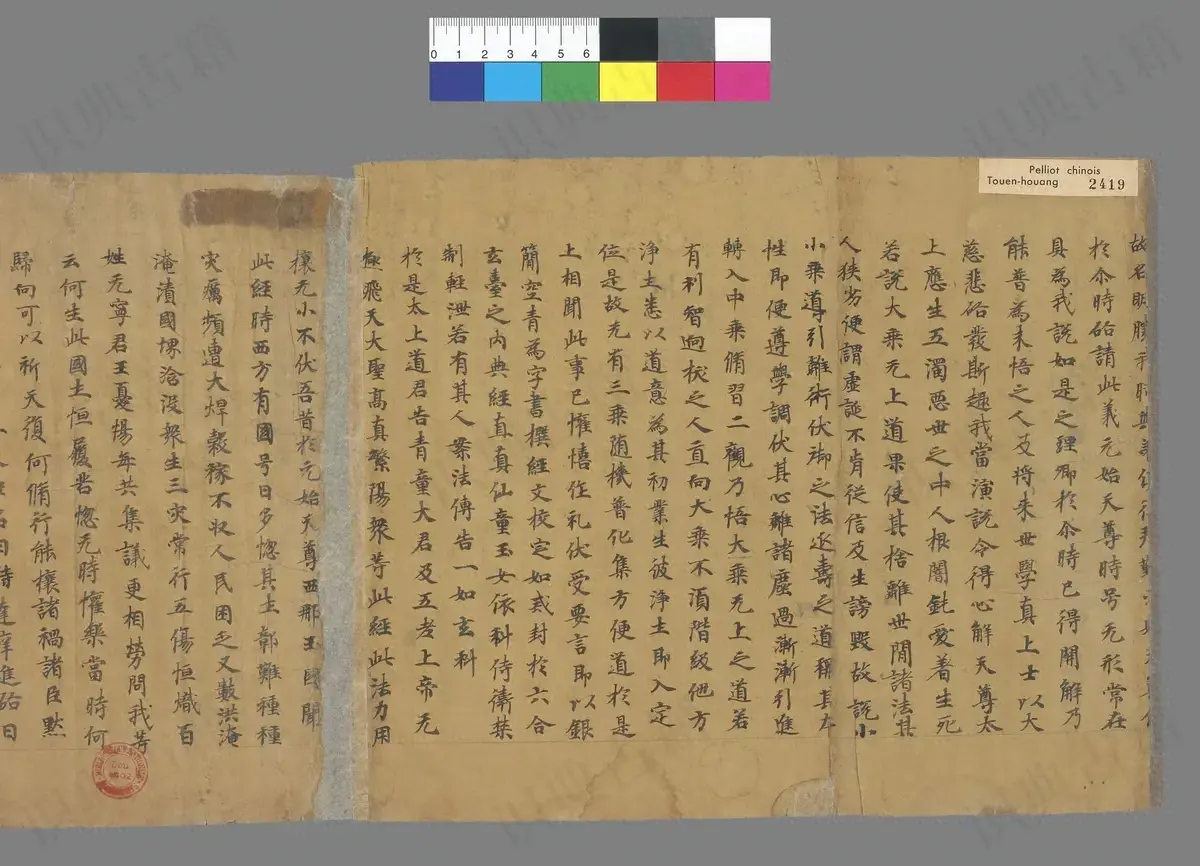 0 1 2 3 4 5 6
Pelliot chinois
Touen-houang 2419
故名
於尒時啟請此義元始天尊時号无形常在
具為我說如是之理卿於尒時已得開解乃
能普為未悟之人及將来世學真上士以大
慈悲啟發斯趣我當演說令得心解天尊太
上應生五濁惡世之中人根闇鈍愛著生死
若說大乘无上道果使其捨離世間諸法其
人狹劣便謂虛誕不肯従信及生謗毀故說小
小乘導引雜術伏御之法延壽之道稱其本
性即便遵學調伏其心離諸塵過漸漸引進
轉入中乘脩習二觀乃悟大乘无上之道若
有利智迴拔之人直向大乘不湏階級他方
淨土悉以道意為其初業生彼淨土即入定
位是故无有三乘随機普化集方便道於是
上相聞此事已懽憘作礼伏受要言即以銀
簡空青為字書撰經文校定如或封於六合
玄臺之內典經直真仙童玉女依科侍衛禁
制輕泄若有其人案法傳告一如玄科
於是太上道君告青童大君及五老上帝无
極飛天大聖高真繁陽眾等此經此法力用
攘无小不伏吾昔於元始天尊西那玉國聞
此經時西方有國号曰多惚其土鄣難種種
灾癘頻遭大焊糓稼不収人民困乏又數洪淹
淹漬國堺浛沒衆生三灾常行五傷恒熾百
姓无寧君王憂惕每共集議更相勞問我等
云何生此國土恒履苦惚无時懽樂當時何
歸向可以祈天復何脩行能攘諸禍諸臣默